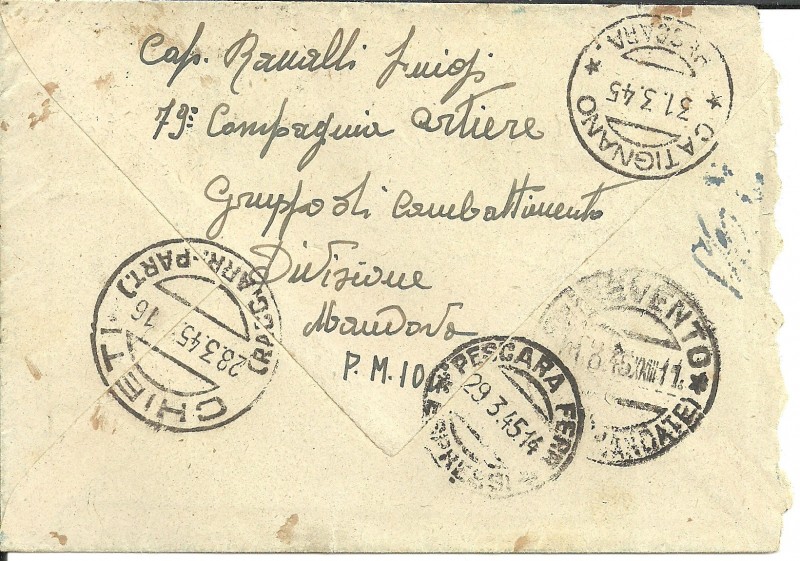 Cap. Ravalli Luigi
79ª Compagnia Artiere
Gruppo di Combattimento
Divisione
Mantova
P. M. 10
CATIGNANO * PESCARA *
31.3.45
CHIETI (RACC. ARR.-PART.)
28.3.45 16
PESCARA FERR
29.3.45.14
VENTO *
XXIII 11